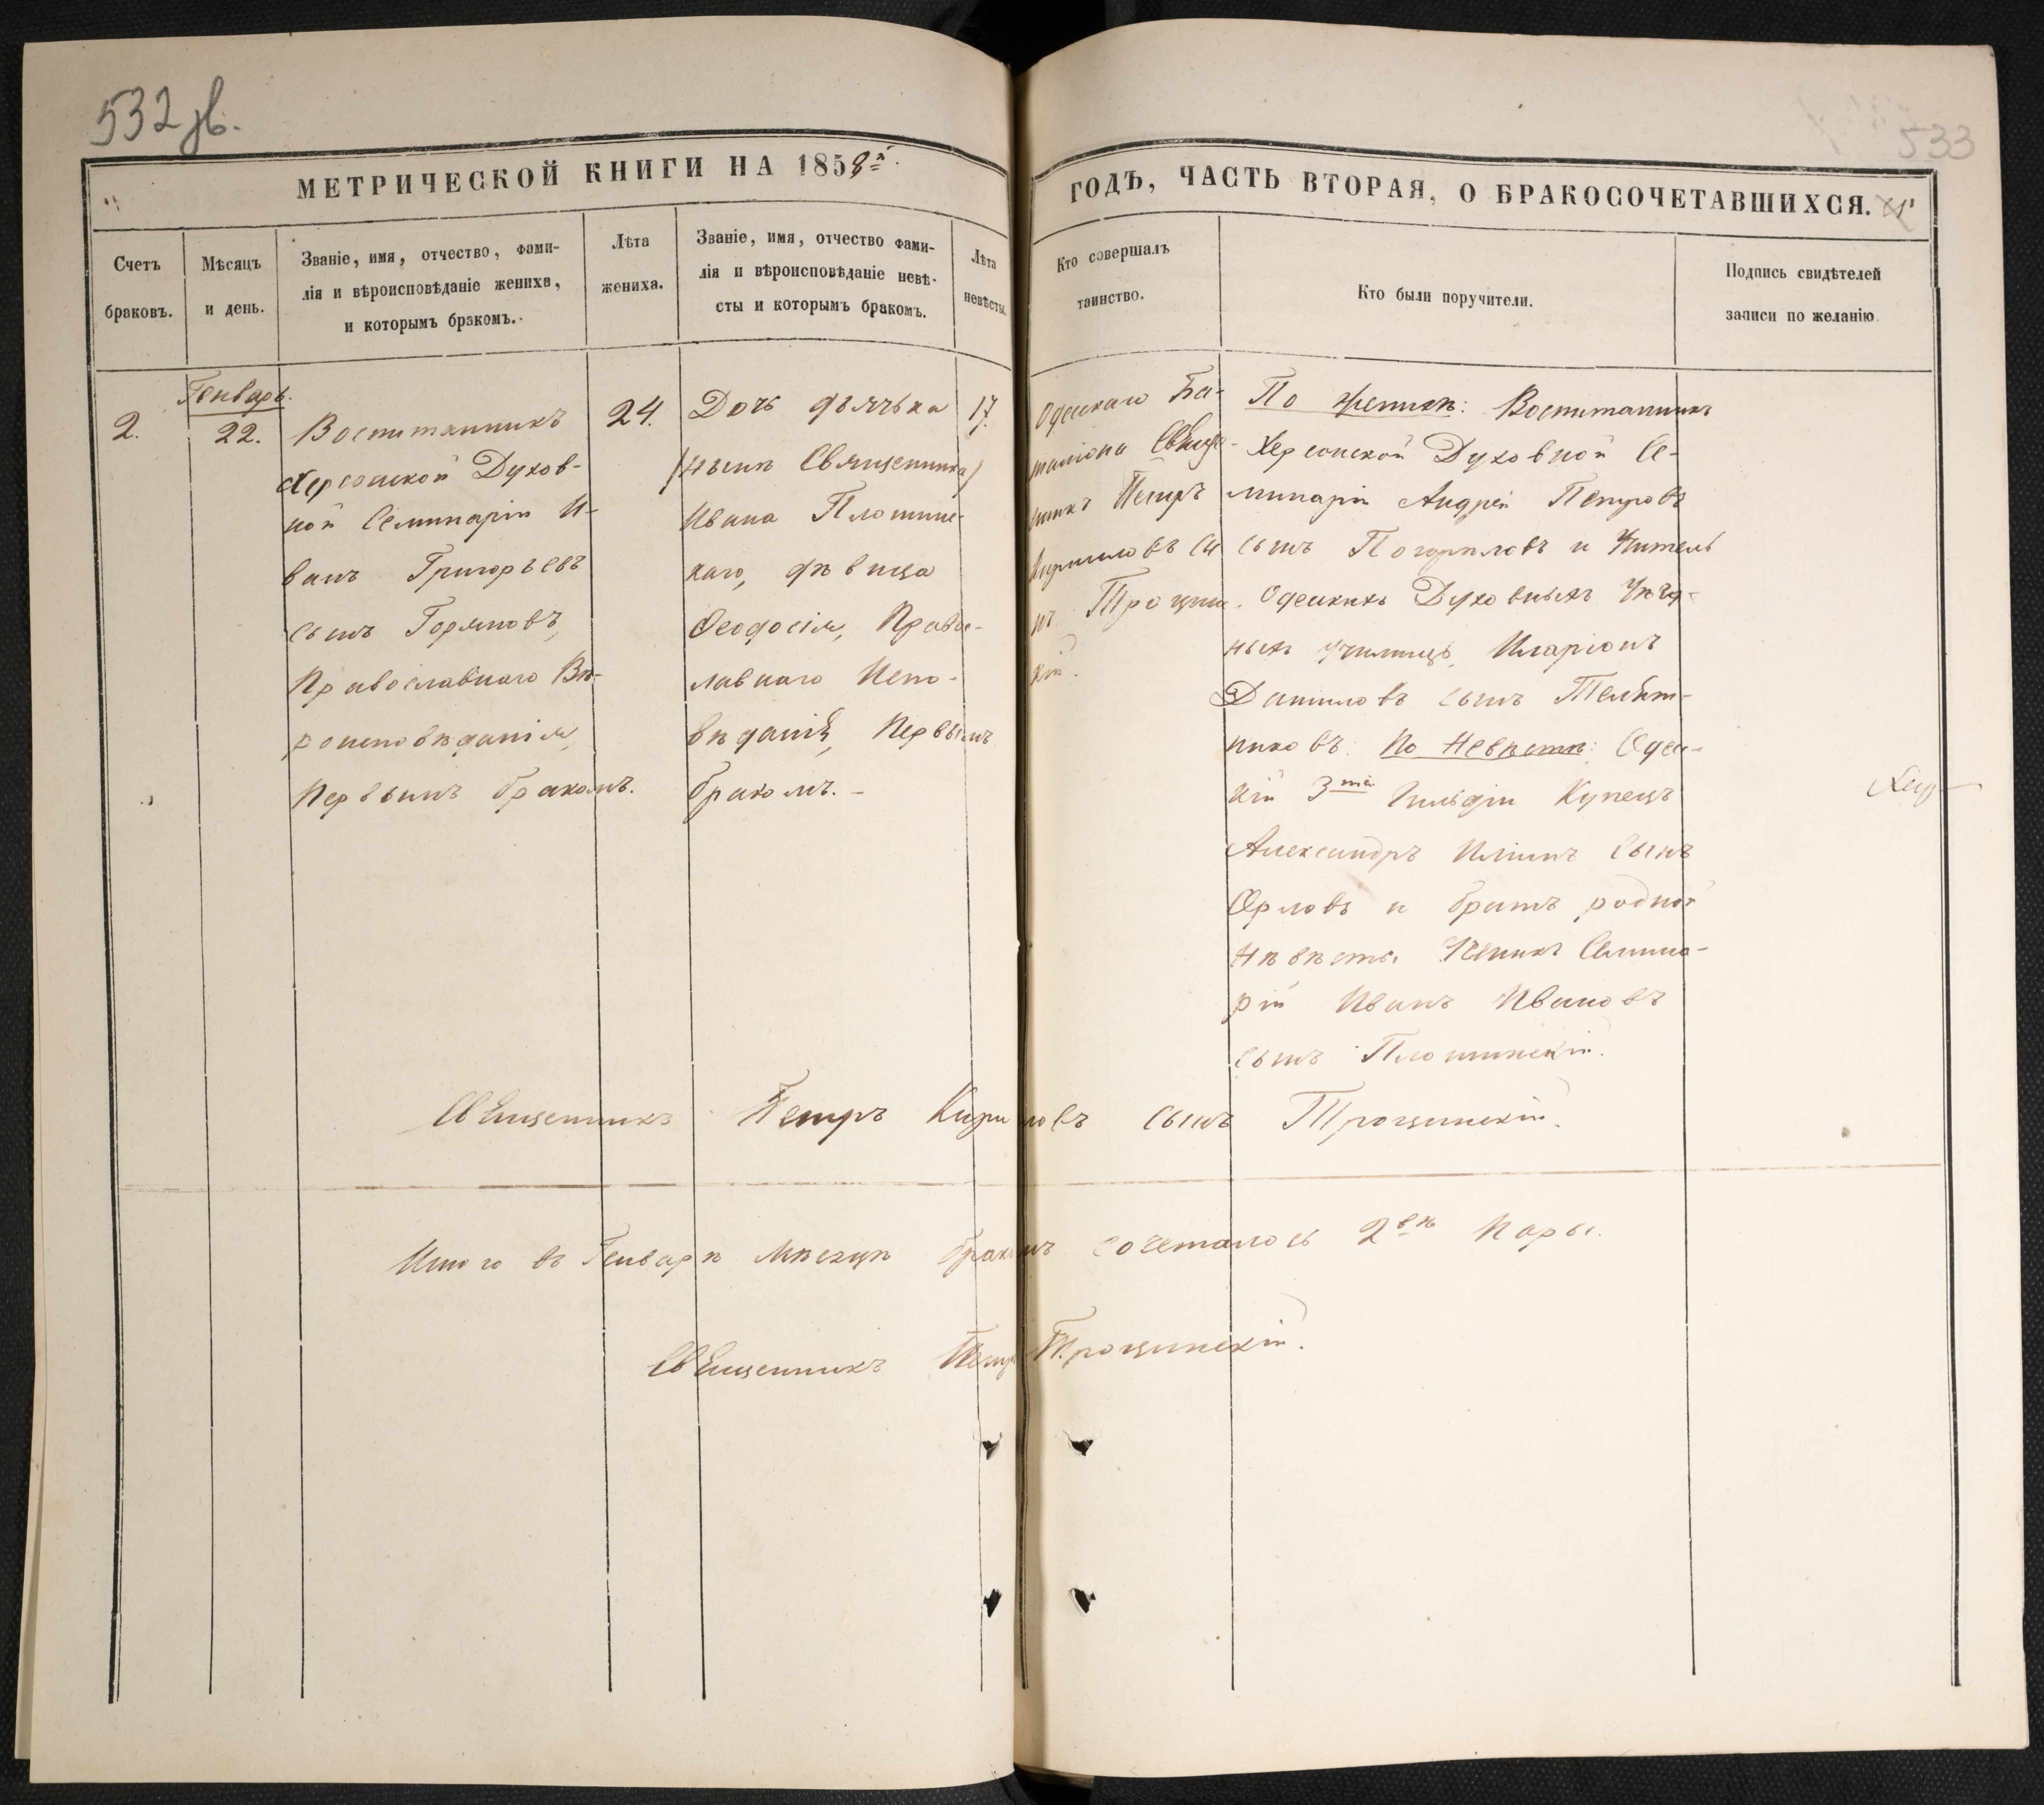 532 зв.
533
МЕТРИЧЕСКОЙ КНИГИ НА 1858й
ГОДЪ, ЧАСТЬ ВТОРАЯ, О БРАКОСОЧЕТАВШИХСЯ.
Счетъ
браковъ.
Мѣсяцъ
и день.
Званіе, имя, отчество, фами-
лія и вѣроисповѣданіе жениха,
и которымъ бракомъ.
Лѣта
жениха.
Званіе, имя, отчество фами-
лія и вѣроисповѣданіе невѣ-
сты и которымъ бракомъ.
Лѣта
невѣсты.
Кто совершалъ
таинство.
Кто были поручители.
Подпись свидѣтелей
записи по желанію
2.
Генварь.
22.
Воспитанникъ
Херсонской Духов-
ной Семинаріи И-
ванъ Григорьевъ
сынъ Горяновъ,
Православнаго Вѣ-
роисповѣданія,
Первымъ бракомъ.
24.
Дочь дьячька
(нынѣ Священника)
Ивана Плотинс-
каго, дѣвица
Ѳеодосія, Правос-
лавнаго Испо-
вѣданія, Первымъ
бракомъ. -
17.
Одескаго Ба-
таліона Свяще-
нникъ Петръ
Кириловъ сы
нъ Трощин-
кій.
По женихѣ: Воспитанникъ
Херсонской Духовной Се-
минаріи Андрей Петровъ
сынъ Погорѣловъ и Учитель
Одескихъ Духовныхъ Уѣзд-
ныхъ училищъ, Иларіонъ
Даниловъ сынъ
никовъ: По Невѣстѣ: Одес-
кій 3тей Гильдіи Купецъ
Александръ Ильинъ сынъ
Орловъ и братъ родной
Нѣвѣсты Ученикъ Семина-
ріи Иванъ Ивановъ
сынъ Плотинскій.
Священникъ Петръ Кириловъ сынъ Трощинскій.
Итого въ Генварѣ Мѣсяцѣ бракомъ сочеталось 2вѣ Пары.
Священникъ Петръ Трощинскій.